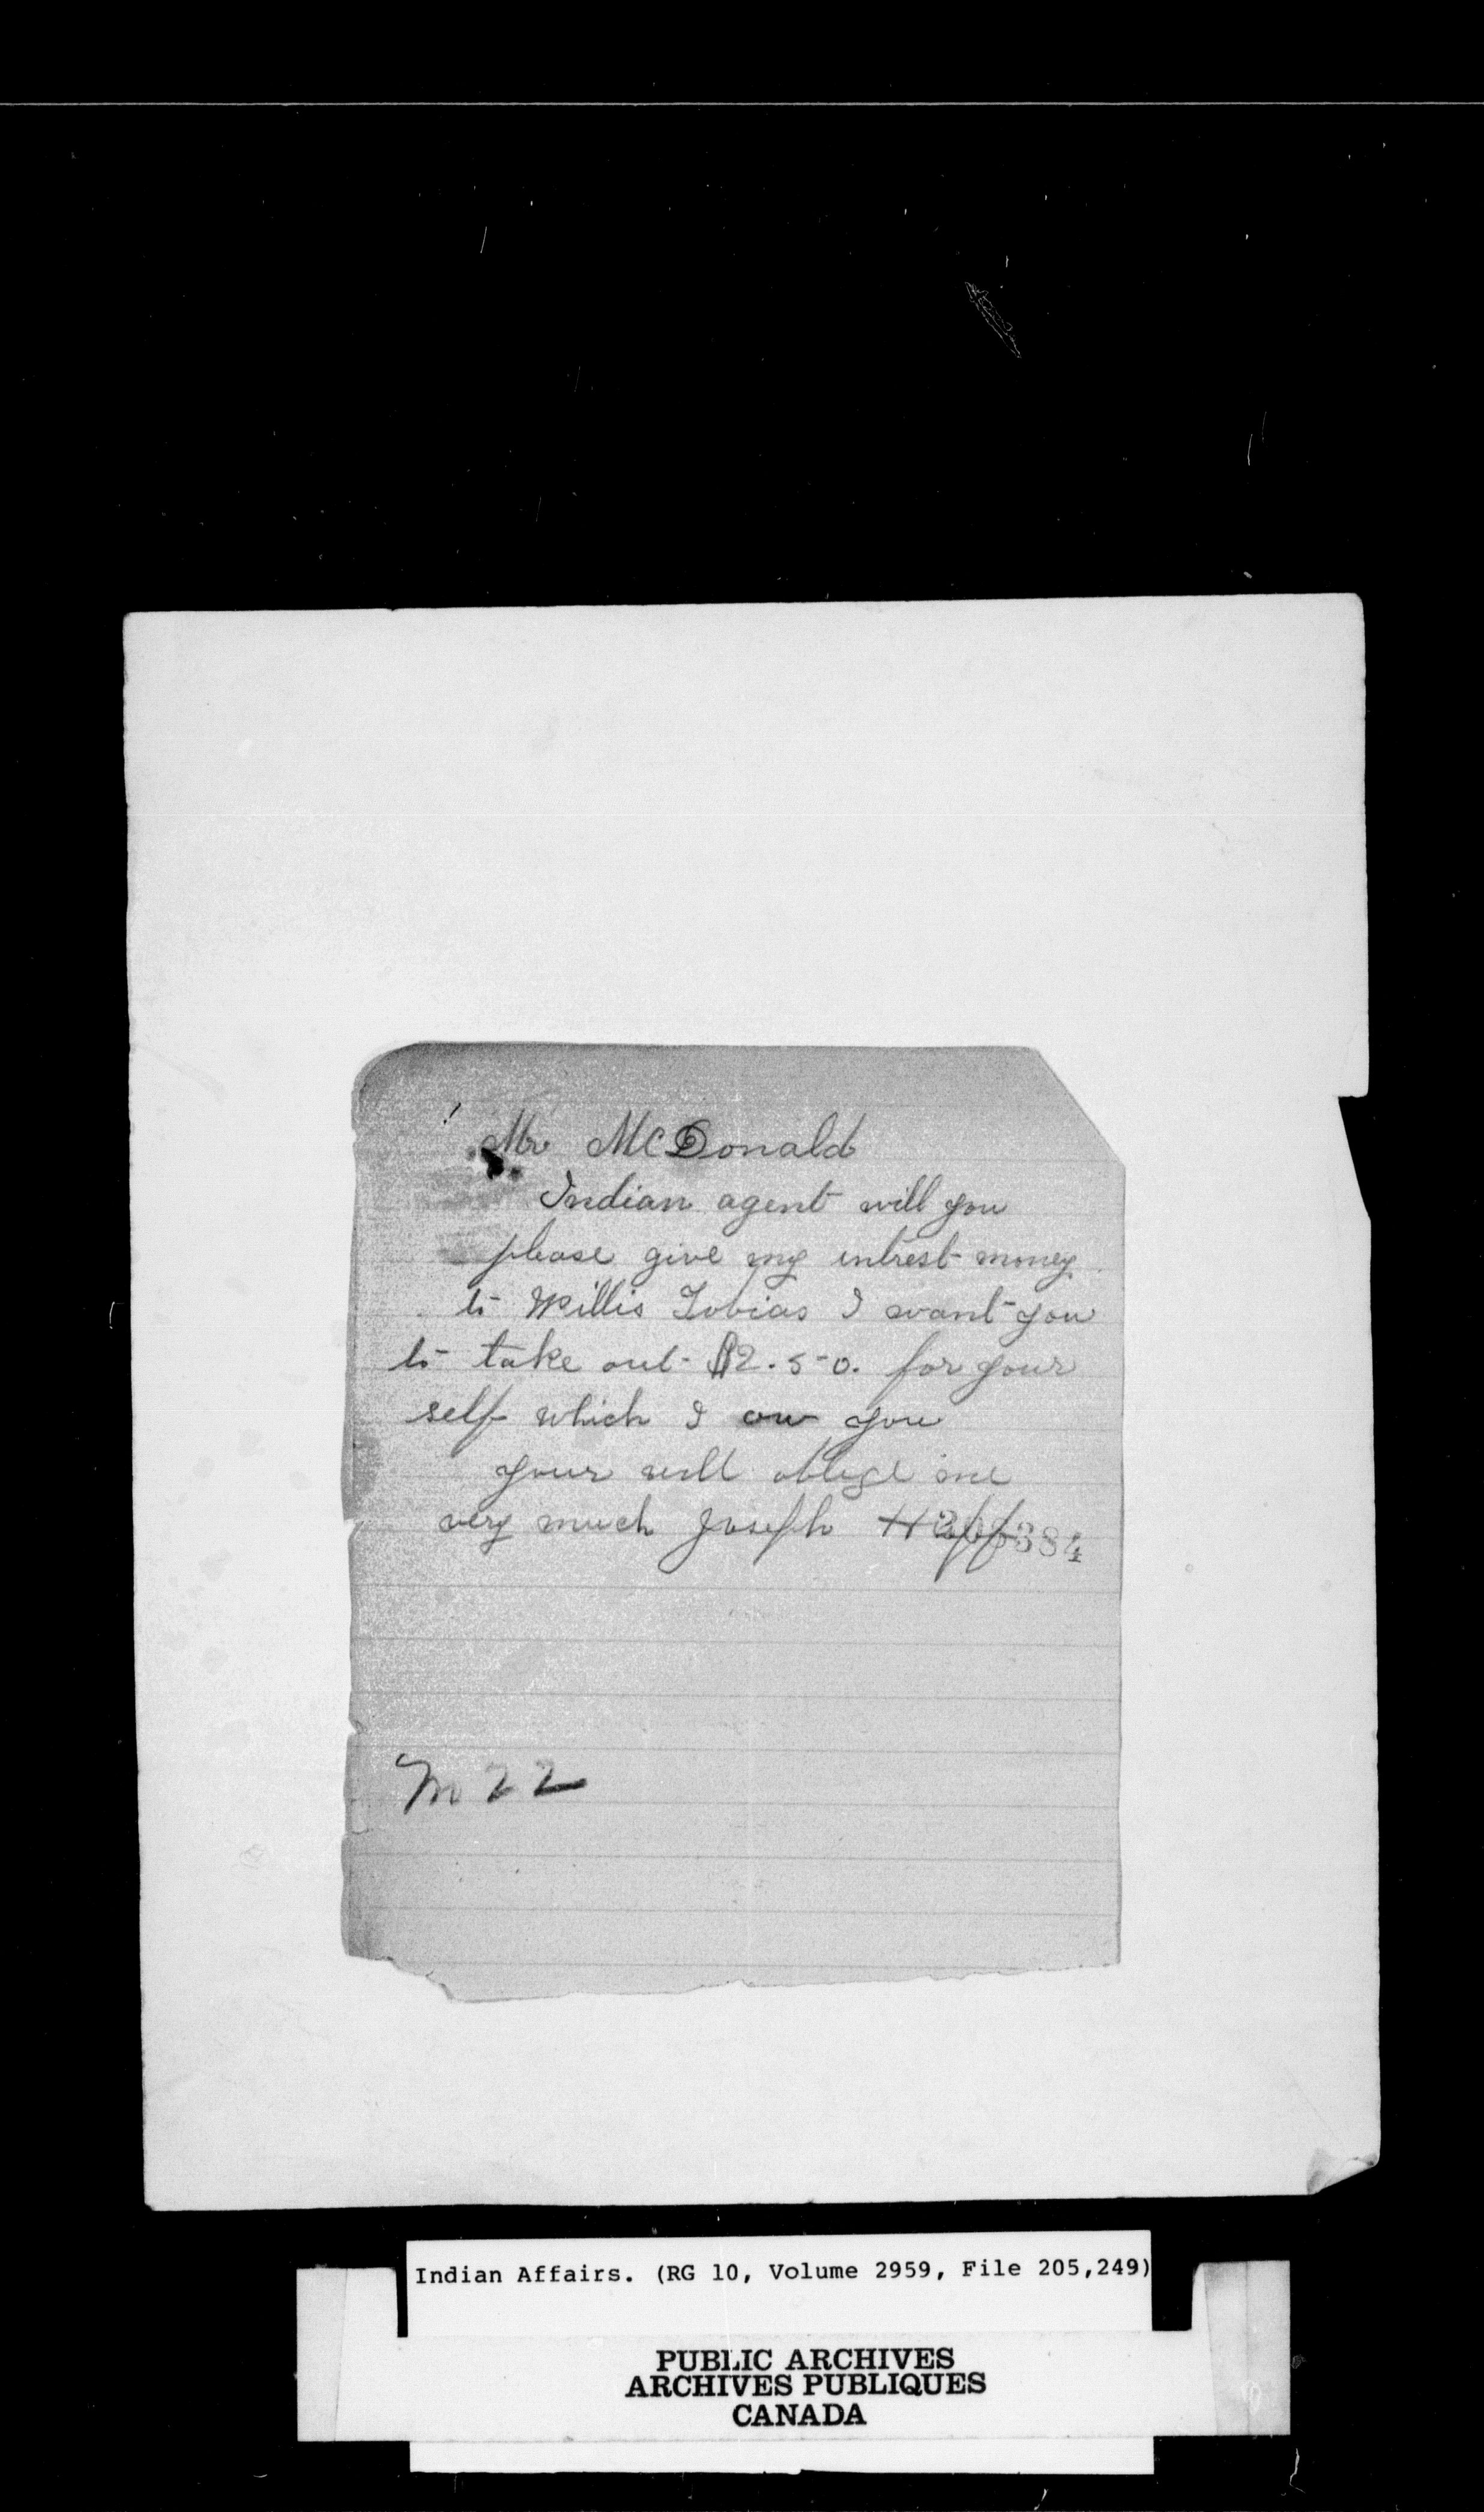 Mr McDonald
Indian agent will you
please give my intrest money
to Willis Tobias I want you
to take out $2.50. for your
self which I ow you
your will oblige me
very much Joseph Huff
206384
M 22
Indian Affairs. (RG 10, Volume 2959, File 205,249)
PUBLIC ARCHIVES
ARCHIVES PUBLIQUES
CANADA